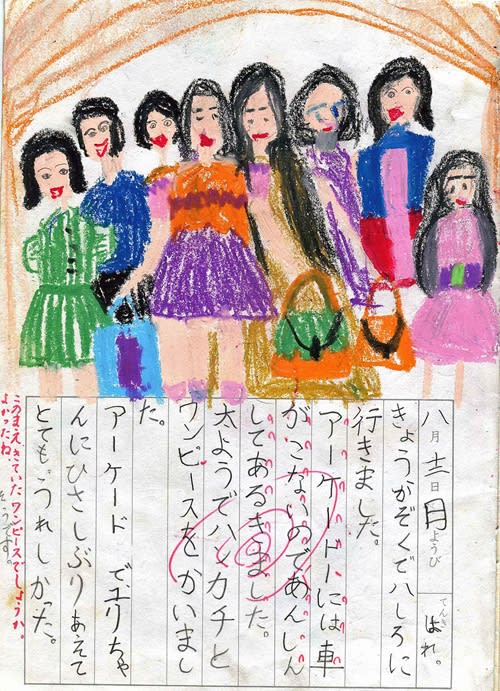 八月十二日月ようび てんき はれ。
きょうがぞくで八しろに
行きました。
アーケードには車
がこないのであんしん
してあるきました。
太ようでハンカチと
ワンピースをかいまし
た。
アーケードで、エリちゃ
んにひさしぶりあえて
とても。うれしかった。
そうです。
このまえ、きていたワンピースでしょうか。
よかったね。